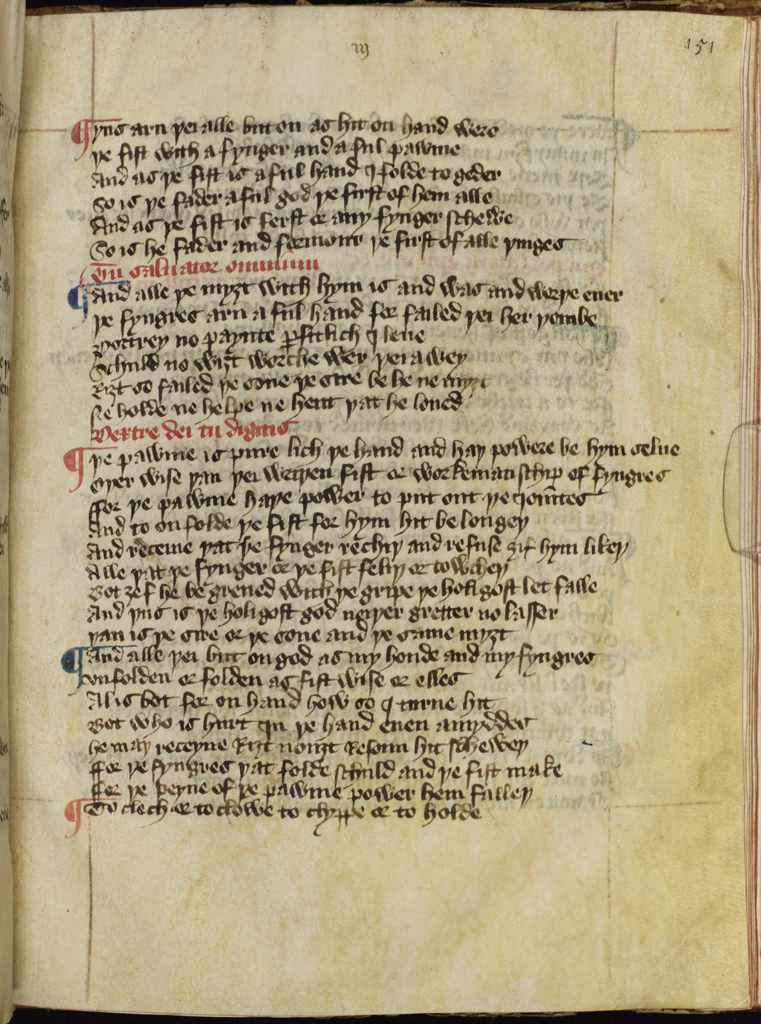 m
151
¶ þus arn þei alle but on as hit on hand were
þe fist with a fynger and a ful pawme
And as þe fist is a ful hand I folde to geder
So is þe fader a ful god þe first of hem alle
And as þe fist is ferst or any fynger schewe
So is he fader and formour þe first of alle þinges
Tu fabricator omnium
¶ And alle þe myȝt with hym is and was and worþe euer
þe fyngres arn a ful hand for failed þei her þombe
Portrey no paynte ꝑfitlich I leue
Schuld no wiȝt worche wer þei awey
Riȝt so failed þe sone þe sire be he ne myȝt
Ne holde ne helpe ne hent þat he loued
Dextre dei tu digitus
¶ þe pawme is pure lich þe hand and haþ powere be hym selue
oþer wise þan þe wreþen fist or workemanschip of fyngres
ffor þe pawme haþe power to put out þe ioyntes
And to onfolde þe fist for hym hit be longeþ
And receiue þat þe fynger rechiþ and refuse ȝif hym likeþ
Alle þat þe fynger or þe fist feliþ or towcheþ
Bot ȝef he be greued with þe gripe þe holi gost let falle
And þus is þe holi gost god neyþer gretter no lasser
þan is þe sire or þe sone and þe same myȝt
¶ And alle þei but on god as my honde and my fyngres
vnfolden or folden as fist wise or elles
Al is bot for on hand how so I turne hit
Bot who is hurt In þe hand euen amyddes
he may receyue Riȝt nouȝt Resoun hit scheweþ
ffor þe fyngres þat folde schuld and þe fist make
ffor þe peyne of þe pawme power hem falleþ
¶ To clech or to clowe to clyppe or to holde